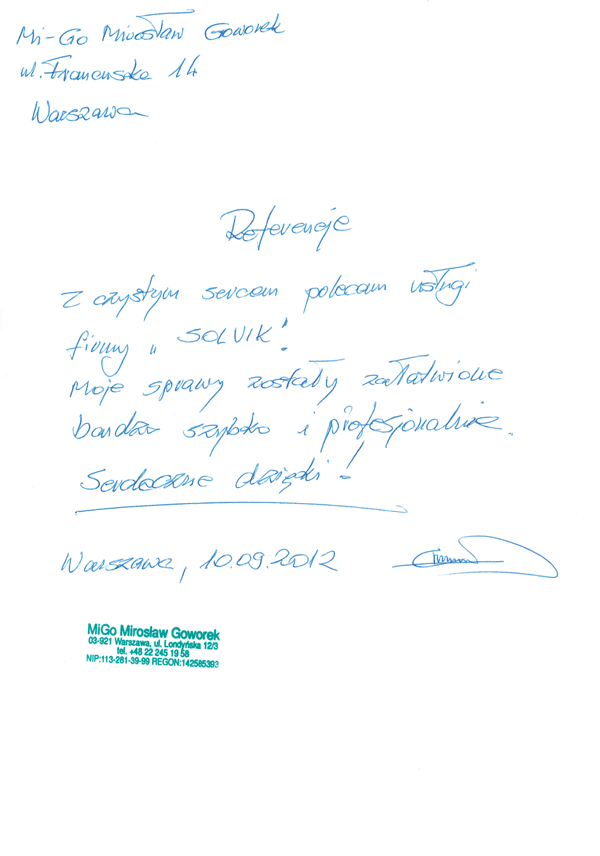 Mi-Go Mirosław Goworek
ul. Francuska 14
Warszawa
Referencje
Z czystym sercem polecam usługi
firmy „SOLVIK".
Moje sprawy zostały załatwione
bardzo szybko i profesjonalnie.
Serdeczne dzięki!
Warszawa, 10.09.2012
MiGo Mirosław Goworek
03-921 Warszawa, ul. Londyńska 12/3
tel. +48 22 245 19 58
NIP:113-261-39-99 REGON:142585393